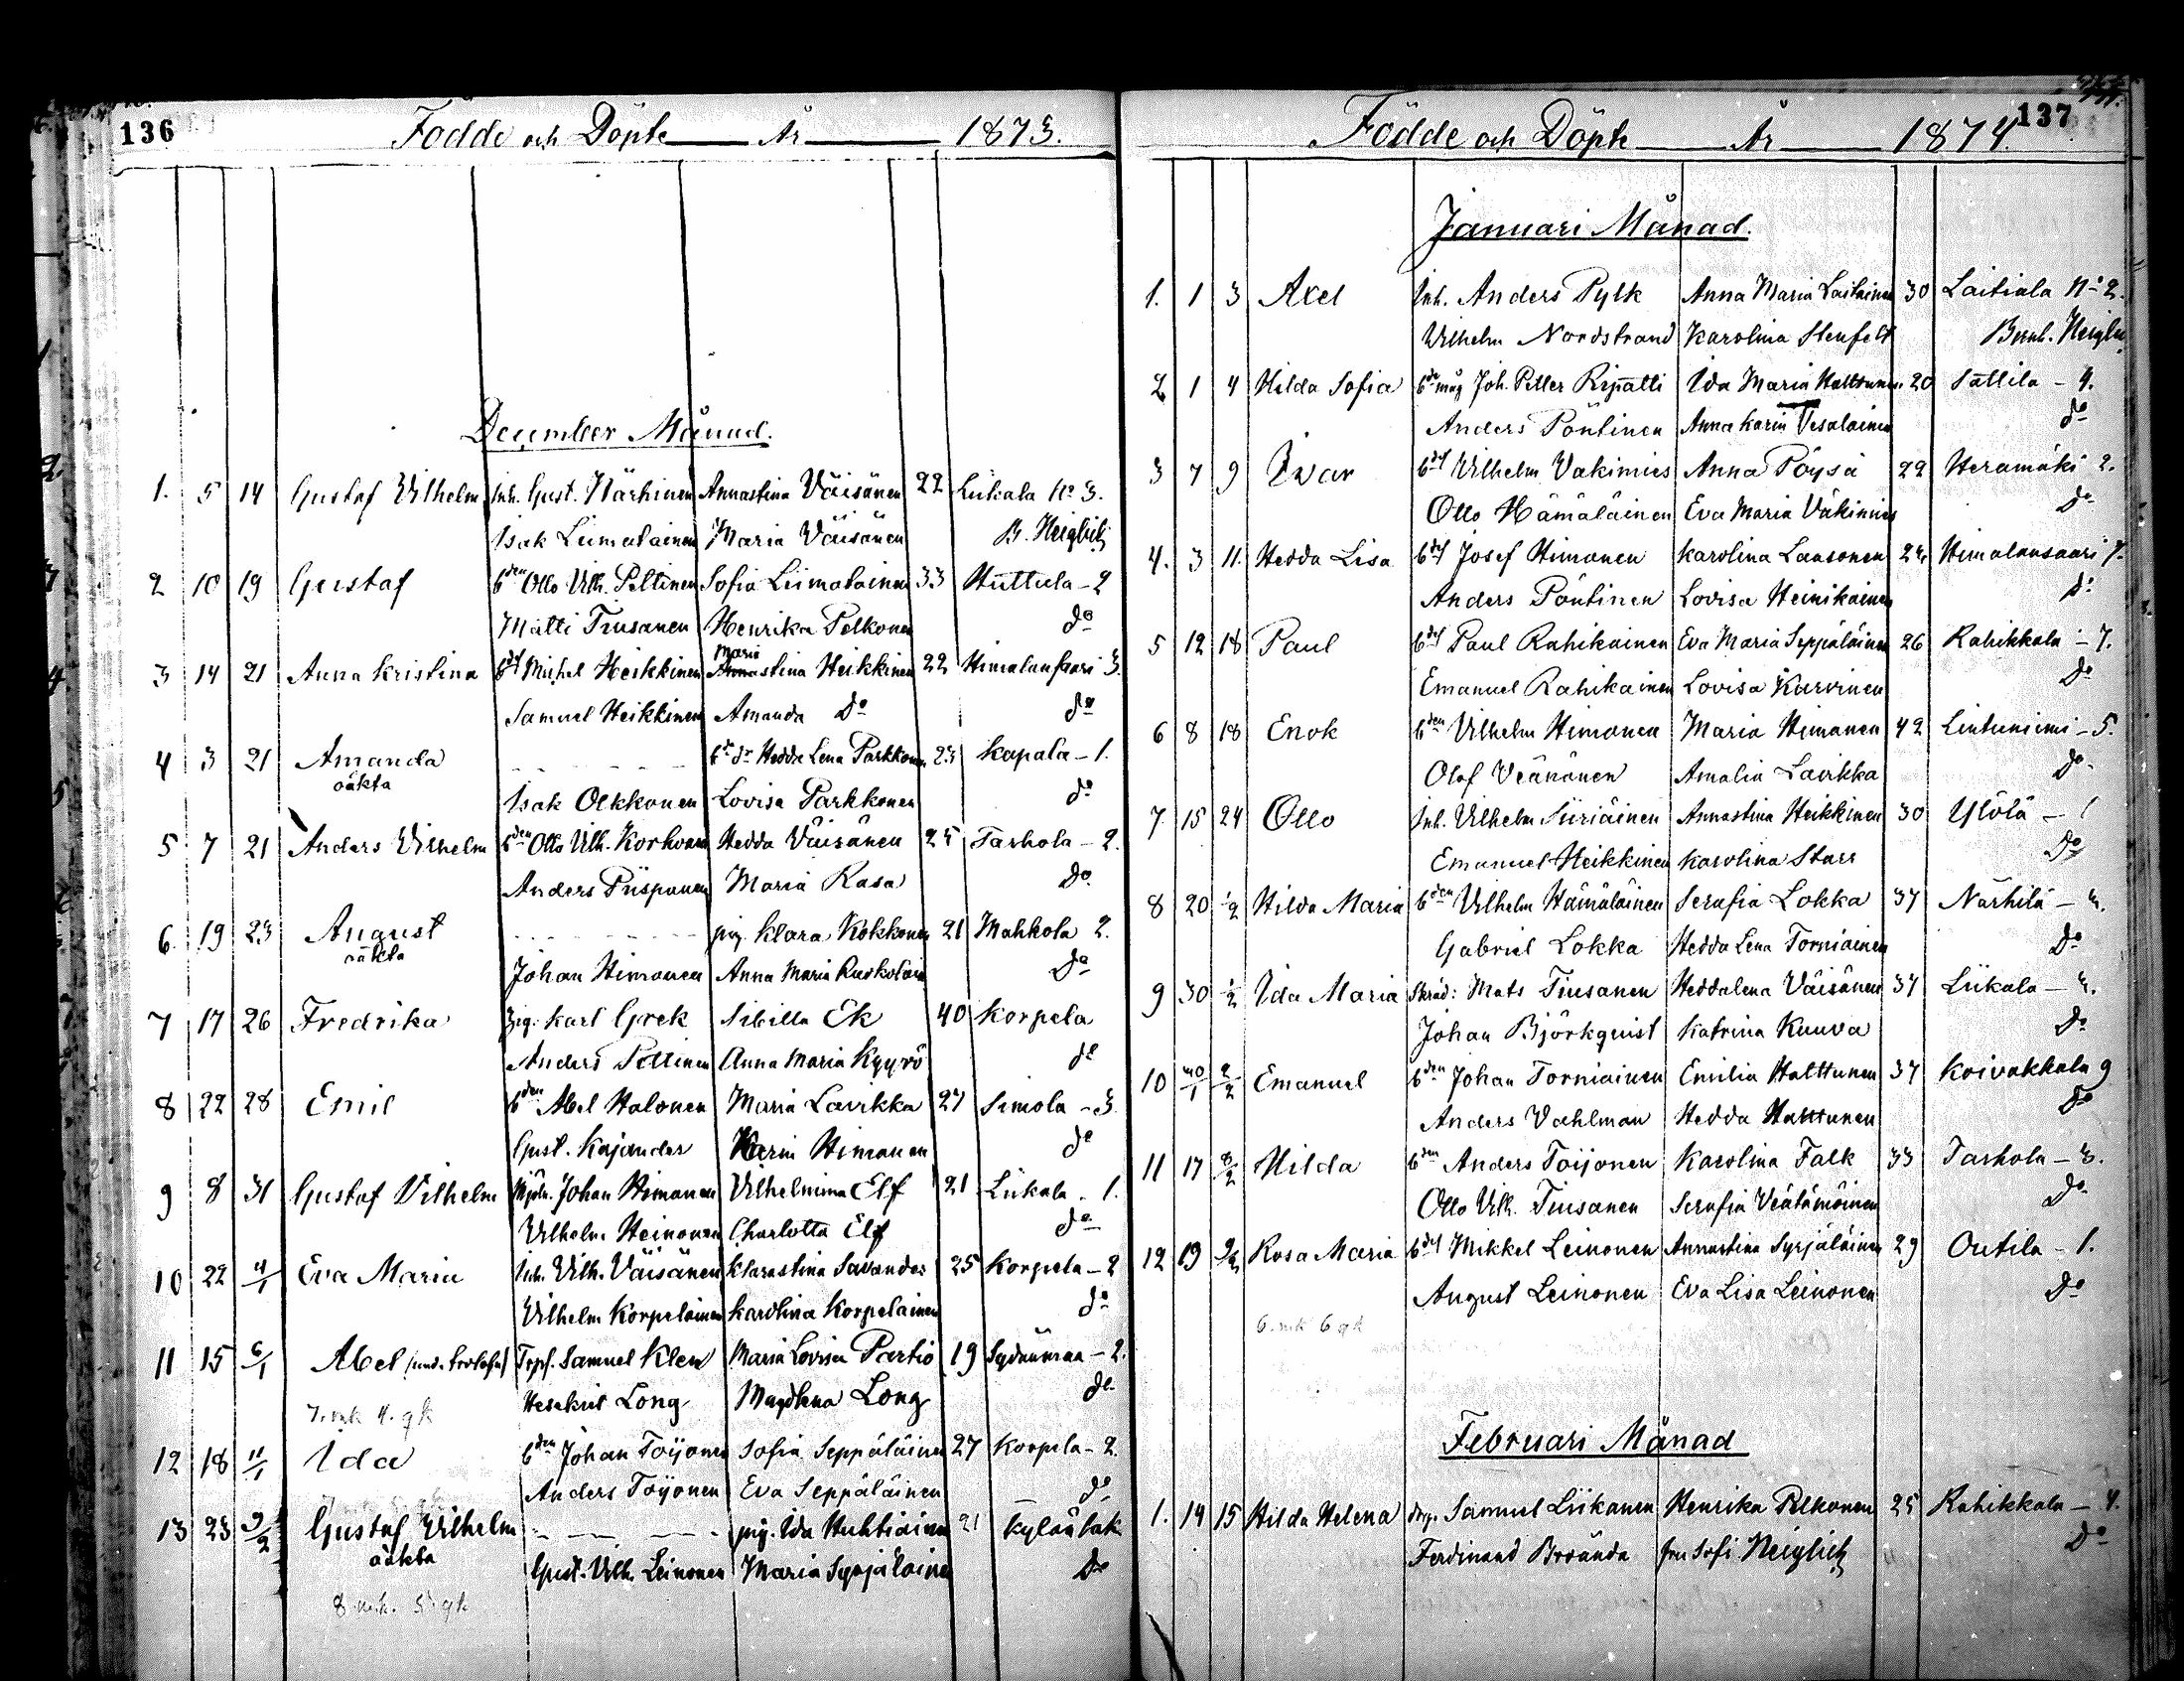 136
Födde och Döpte År 1873.
December Månad.
1. 5 14 Gustaf Vilhelm Inh. Gust. Närhinen Annastina Väisänen 22 Liikala No 3.
Isak Liimatainen Maria Väisänen B. Heiglich
2 10 19 Gustaf bden Otto Vilh. Peltinen Sofia Liimatainen 33 Huttula - 2
Matti Tiusanen Henrika Pelkonen do
3 14 21 Anna Kristina Michel Heikkinen Maria stina Heikkinen 22 Himalansaari 3.
Samuel Heikkinen Amanda Do do
4 3 21 Amanda Hedda Lena Parkkonen 23 Kapala - 1.
oäkta
Isak Olkkonen Lovisa Parkkonen do
5 7 21 Anders Vilhelm bden Otto Vilh. Korhonen Hedda Väisänen 25 Tarhola - 2.
Anders Piispanen Maria Rasa Do
6. 19 23 August pig. Klara Kokkonen 21 Mahkola 2.
oäkta
Johan Himanen Anna Maria Do
7 17 26 Fredrika Karl Grek Sibilla Ek 40 Korpela
Anders Peltinen Anna Maria Kyyrö do
8 22 28 Emil bden Abel Halonen Maria Lavikka 27 Simola - 3
Gust. Kajander Karin Himanen do
9 8 31 Gustaf Vilhelm Mjöln. Johan Himanen Vilhelmina Elf 21 Liikala - 1.
Vilhelm Heinonen Charlotta Elf do
10 22 4/1 Eva Maria Inh. Vilh. Väisänen Klarastina Savander 25 Korpela - 2
Vilhelm Korpelainen Karolina Korpelainen do
11 15 6/1 Abel Samuel Klen Maria Lovisa Partio 19 Sydänmaa - 2.
Hesekiel Long Magdlena Long do
7. mk 4. qk
12 18 11/1 Ida bden Johan Toijonen Sofia Seppäläinen 27 Korpela - 2.
Anders Toijonen Eva Seppäläinen do
13 23 9/2 Gustaf Vilhelm pig. Ida Huhtiainen 21
oäkta
Gust. Vilh. Leinonen Maria Syrjäläinen Do
8 mk. 5 qk
137
Födde och Döpte År 1874.
Januari Månad.
1. 1 3 Axel Inh. Anders Pylk Anna Maria Laitainen 30 Laitiala No 2.
Vilhelm Nordstrand Karolina Stenfelt Bernh. Heiglich
2 1 4 Hilda Sofia Joh. Petter Ripatti Ida Maria Halttunen 20 Sattila - 4.
Anders Pöntinen Anna Karin Vesalainen do
3 7 9 Ivar Vilhelm Vakimies Anna Pöysä 22 Heramäki 2.
Otto Hämäläinen Eva Maria Väkimies Do
4. 3 11. Hedda Lisa Josef Himanen Karolina Laasonen Himalansaari 7.
Anders Pöntinen Lovisa Heinikainen Do
5 12 18 Paul Paul Rahikainen Eva Maria Seppäläinen 26 Rahikkala - 7.
Emanuel Rahikainen Lovisa Karvinen Do
6 8 18 Enok bden Vilhelm Himanen Maria Himanen 42 Lintuniemi - 5.
Olof Veänänen Amalia Lavikka Do
7. 15 24 Otto Inh. Vilhelm Siiriäinen Annastina Heikkinen 30 Ylölä - 1
Emanuel Heikkinen Karolina Starr Do
8 20 1/2 Hilda Maria bden Vilhelm Hämäläinen Serafia Lokka 37 Närhilä - 3.
Gabriel Lokka Hedda Lena Torniainen Do
9 30 1/2 Ida Maria Skräd: Mats Tiusanen Heddalena Väisänen 37 Liikala - 3.
Johan Björkquist Katrina Kuuva Do
10 30/1 2/2 Emanuel bden Johan Torniainen Emilia Halttunen 37 Koivakkala 9
Anders Vahlman Hedda Halttunen Do
11 17 8/2 Hilda bden Anders Toijonen Karolina Falk 33 Tarhola - 3.
Otto Vilh. Tiusanen Serafia Veätämöinen Do
12 19 9/2 Rosa Maria Mikkel Leinonen Annastina Syrjäläinen 29 Outila - 1.
August Leinonen Eva Lisa Leinonen Do
6. mk 6 qk
Februari Månad
1. 14 15 Hilda Helena drg. Samuel Liikanen Henrika Pelkonen 25 Rahikkala - 4.
Ferdinand Brrända fru Sofi Heiglich Do